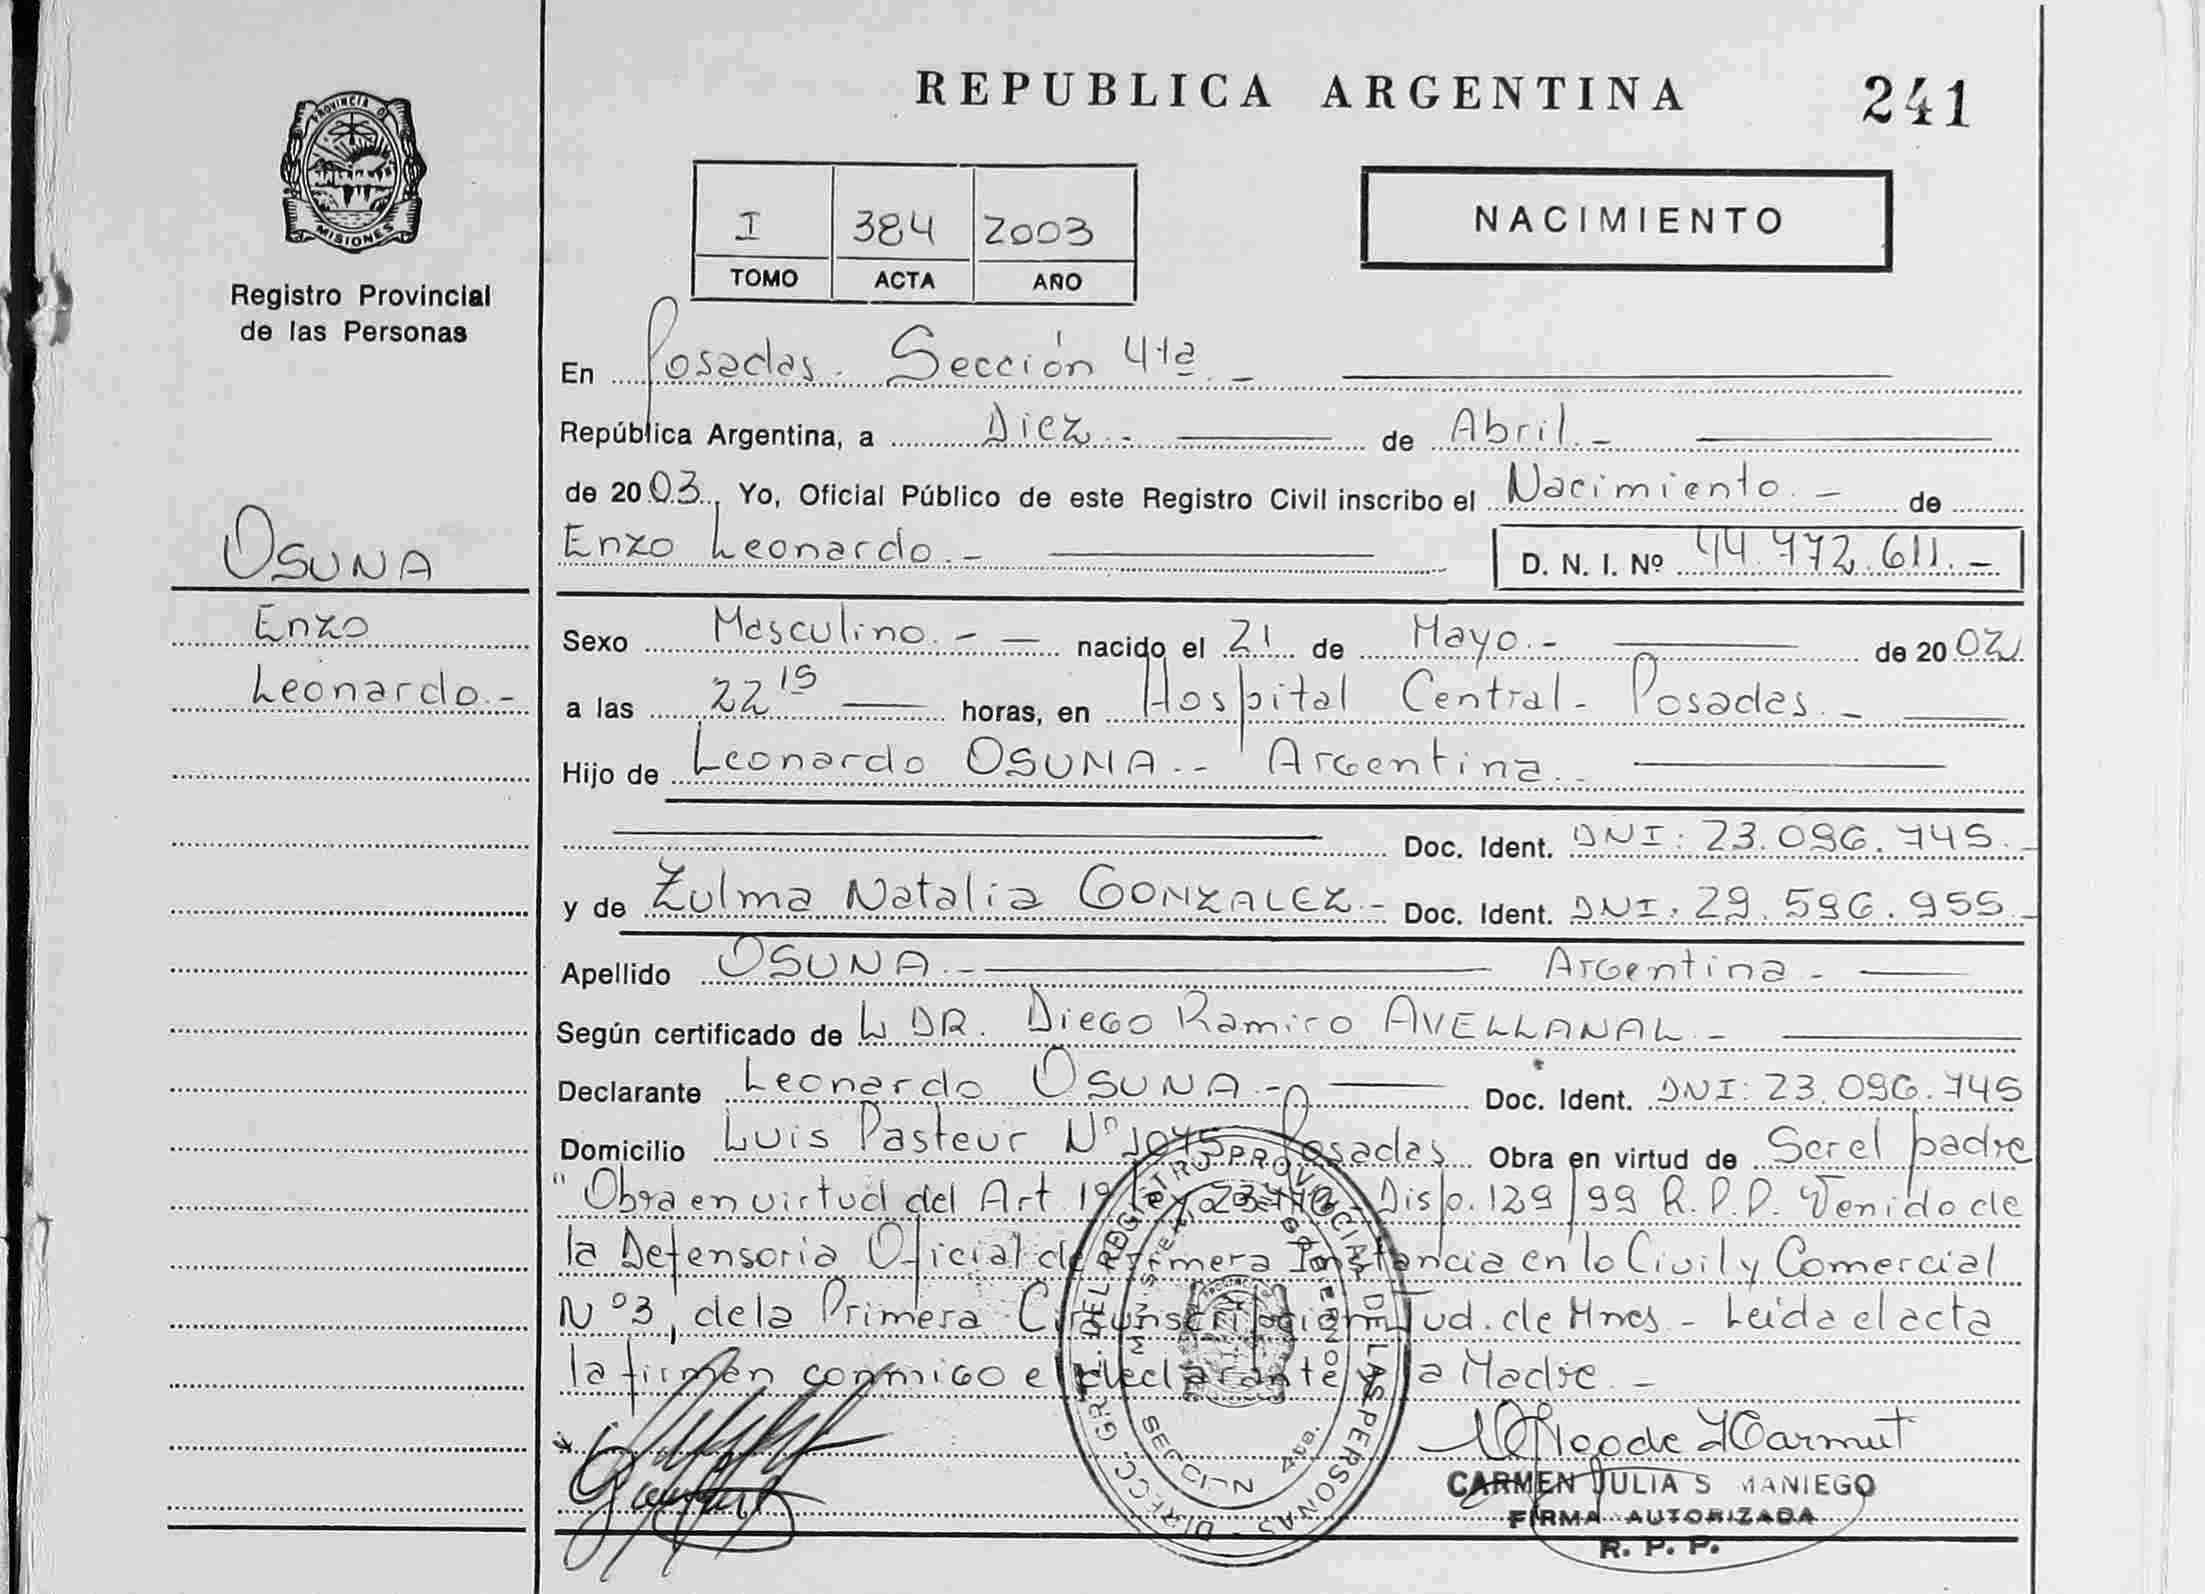 REPUBLICA ARGENTINA
241
PROVINCIA D
MISIONES
Registro Provincial
de las Personas
I 384 2003
TOMO ACTA AÑO
NACIMIENTO
En Posadas. Sección 4ta. -
República Argentina, a Diez.- de Abril.-
de 2003., Yo, Oficial Público de este Registro Civil inscribo el Nacimiento.- de
Enzo Leonardo.- D. N. I. Nº 44.472.611.-
OSUNA
Enzo
Leonardo.-
Sexo Masculino.- - nacido el 21 de Mayo.- de 2002
a las 22 15 horas, en Hospital Central- Posadas.-
Hijo de Leonardo OSUNA.- Argentina.-
Doc. Ident. DNI: 23.096.745.-
y de Zulma Natalia GONZALEZ- Doc. Ident. DNI: 29.596.955.-
Apellido OSUNA.- Argentina-
Según certificado de L DR. Diego Ramiro AVELLANAL-
Declarante Leonardo OSUNA- Doc. Ident. DNI: 23.096.745
Domicilio Luis Pasteur Nº 1045- Posadas Obra en virtud de Ser el padre
"Obra en virtud del Art 1º Disp. 129/99 R.P.P. Venido de
la Defensoria Oficial de Primera Instancia en lo Civil y Comercial
Nº3, de la Primera Circunscripcion Jud. de Mnes- Leida el acta
la firman conmigo el declarante y la Madre.-
DIRECC. GRAL. DEL REGISTRO PROVINCIAL DE LAS PERSONAS
MINISTERIO DE GOBIERNO
SECCION 4ta.
CARMEN JULIA S MANIEGO
FIRMA AUTORIZADA
R. P. P.